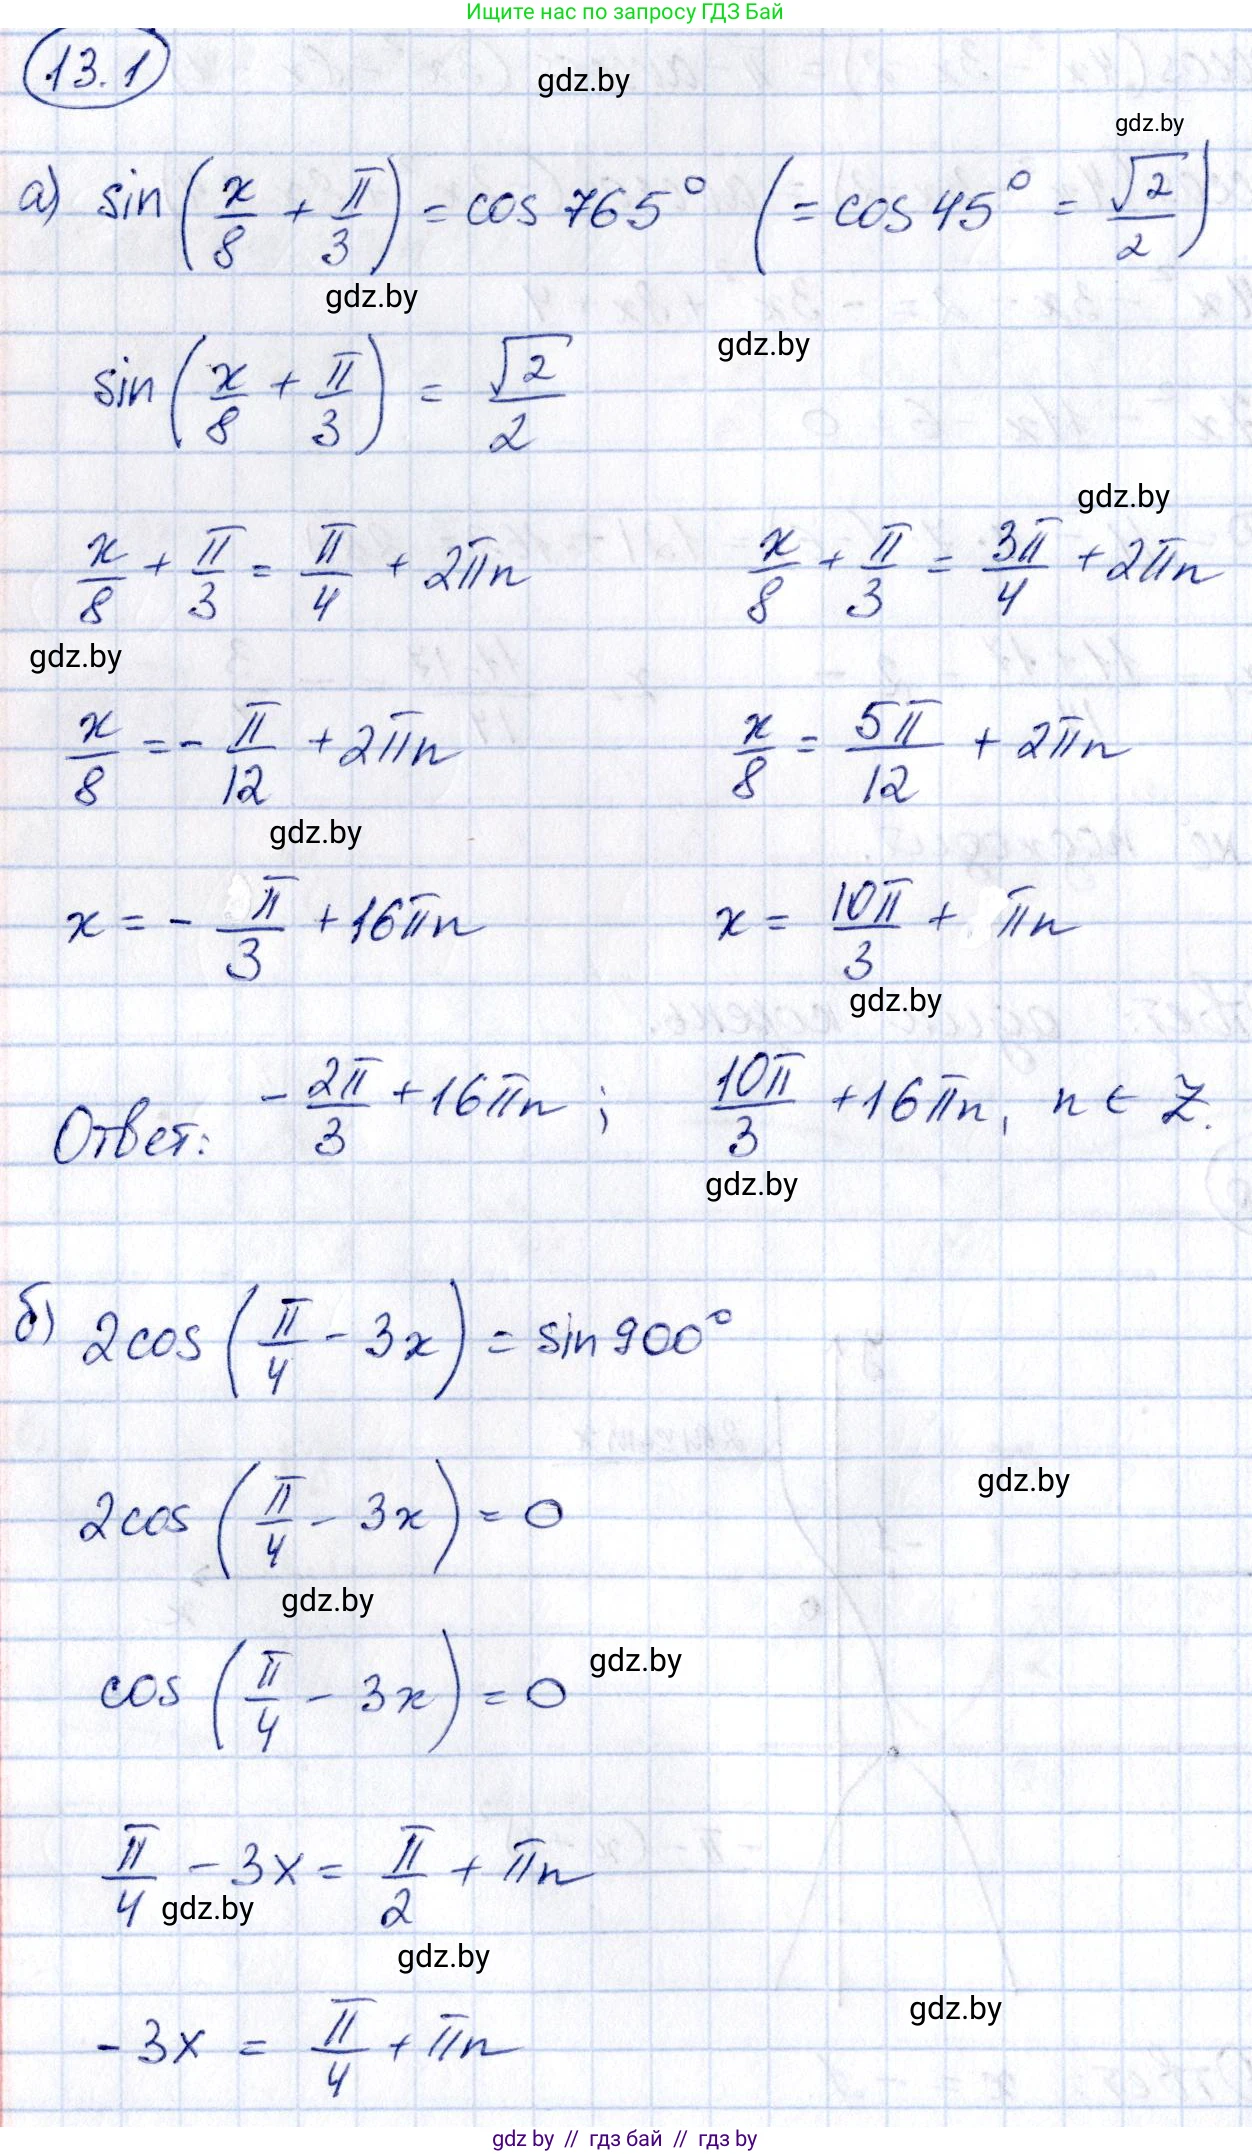 Ищите нас по запросу ГДЗ Бай
13.1
gdz.by
gdz.by
а) sin(x/8 + π/3) = cos 765° (= cos 45° = √2/2)
gdz.by
gdz.by
sin(x/8 + π/3) = √2/2
gdz.by
x/8 + π/3 = π/4 + 2πn    x/8 + π/3 = 3π/4 + 2πn
gdz.by
x/8 = - π/12 + 2πn    x/8 = 5π/12 + 2πn
gdz.by
x = - π/3 + 16πn    x = 10π/3 + πn
gdz.by
Ответ: - 2π/3 + 16πn ; 10π/3 + 16πn, n ∈ Z.
gdz.by
б) 2cos(π/4 - 3x) = sin 900°
gdz.by
2cos(π/4 - 3x) = 0
gdz.by
gdz.by
cos(π/4 - 3x) = 0
π/4 - 3x = π/2 + πn
gdz.by
gdz.by
gdz.by
-3x = π/4 + πn
gdz by // гдз бай // гдз by